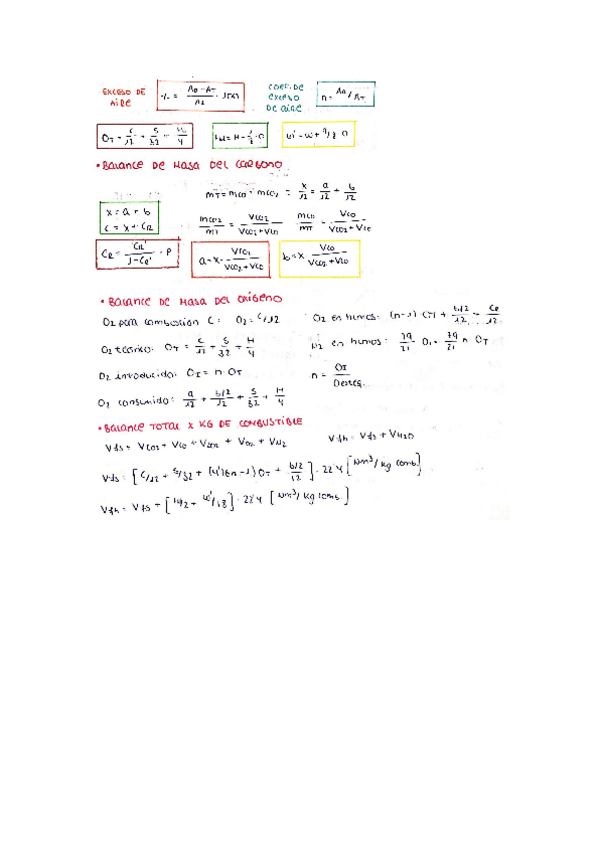 EXCESO DE AIRE % = (A0 - AT)/AT · 100 COEF. DE EXCESO DE AIRE n = A0/AT
OT = C/12 + S/32 + H/4 H - 1/8 · O W' = W + 9/8 O
• BALANCE DE MASA DEL CARBONO
mT = mCO + mCO2 = X/12 = a/12 + b/12
X = a + b
C = X + CR
mCO2/mT = VCO2/(VCO2 + VCO) mCO/mT = VCO/(VCO2 + VCO)
CR = CR'/(1 - CR') · P a = X · VCO2/(VCO2 + VCO) b = X · VCO/(VCO2 + VCO)
• BALANCE DE MASA DEL OXÍGENO
O2 para combustión C: O2 = C/12 O2 en humos: (n-1) OT + (b/2)/12 + CR/12
O2 teórico: OT = C/12 + S/32 + H/4 N2 en humos: 79/21 · OI = 79/21 n OT
O2 introducido: OI = n OT n = OI
O2 consumido: a/12 + (b/2)/12 + S/32 + H/4
• BALANCE TOTAL X KG DE COMBUSTIBLE
Vfs = VCO2 + VCO + VSO2 + VO2 + VN2 Vfh = Vfs + VH2O
Vfs = [C/12 + S/32 + OT + (b/2)/12] · 22'4 [Nm³/kg comb.]
Vfh = Vfs + [H/2 + W'/18] · 22'4 [Nm³/kg comb.]